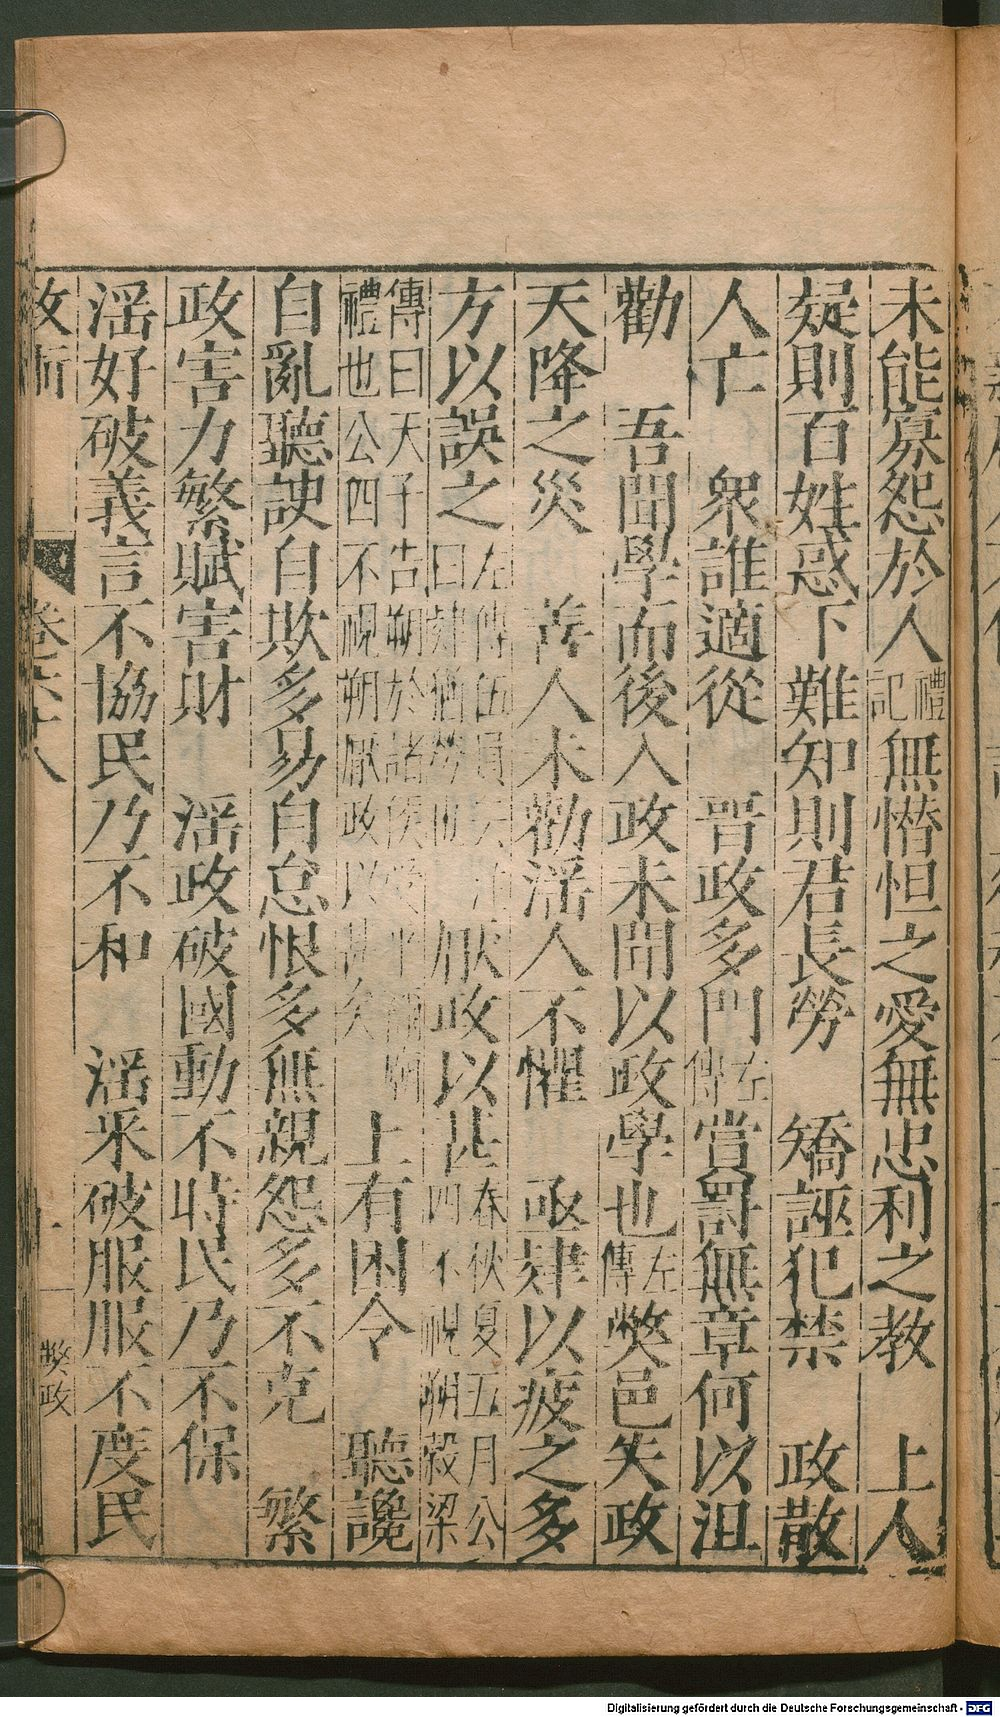 未能寡怨於人禮記無憯怛之愛無忠利之教　上人
疑則百姓惑下難知則君長勞　矯誣犯禁　政散
人亡　衆誰適從　晉政多門左傳賞罰無章何以沮
勸　吾聞學而後入政未聞以政學也左傳獘邑失政
天降之災　善人未勸滛人不懼　亟肄以疲之多
方以誤之左傳伍員曰肄猶勞也厭政以甚春秋夏五月公四不視朔榖梁
傳曰天子告朔於諸侯受乎禰廟禮也公四不視朔厭政以甚矣　上有困令　聽讒
自亂聽諛自欺多易自怠恨多無親怨多不克　繁
政害力繁賦害財　滛政破國動不時民乃不保
滛好破義言不協民乃不和　滛采破服服不度民
卷六十八
獘政
Digitalisierung gefördert durch die Deutsche Forschungsgemeinschaft - DFG